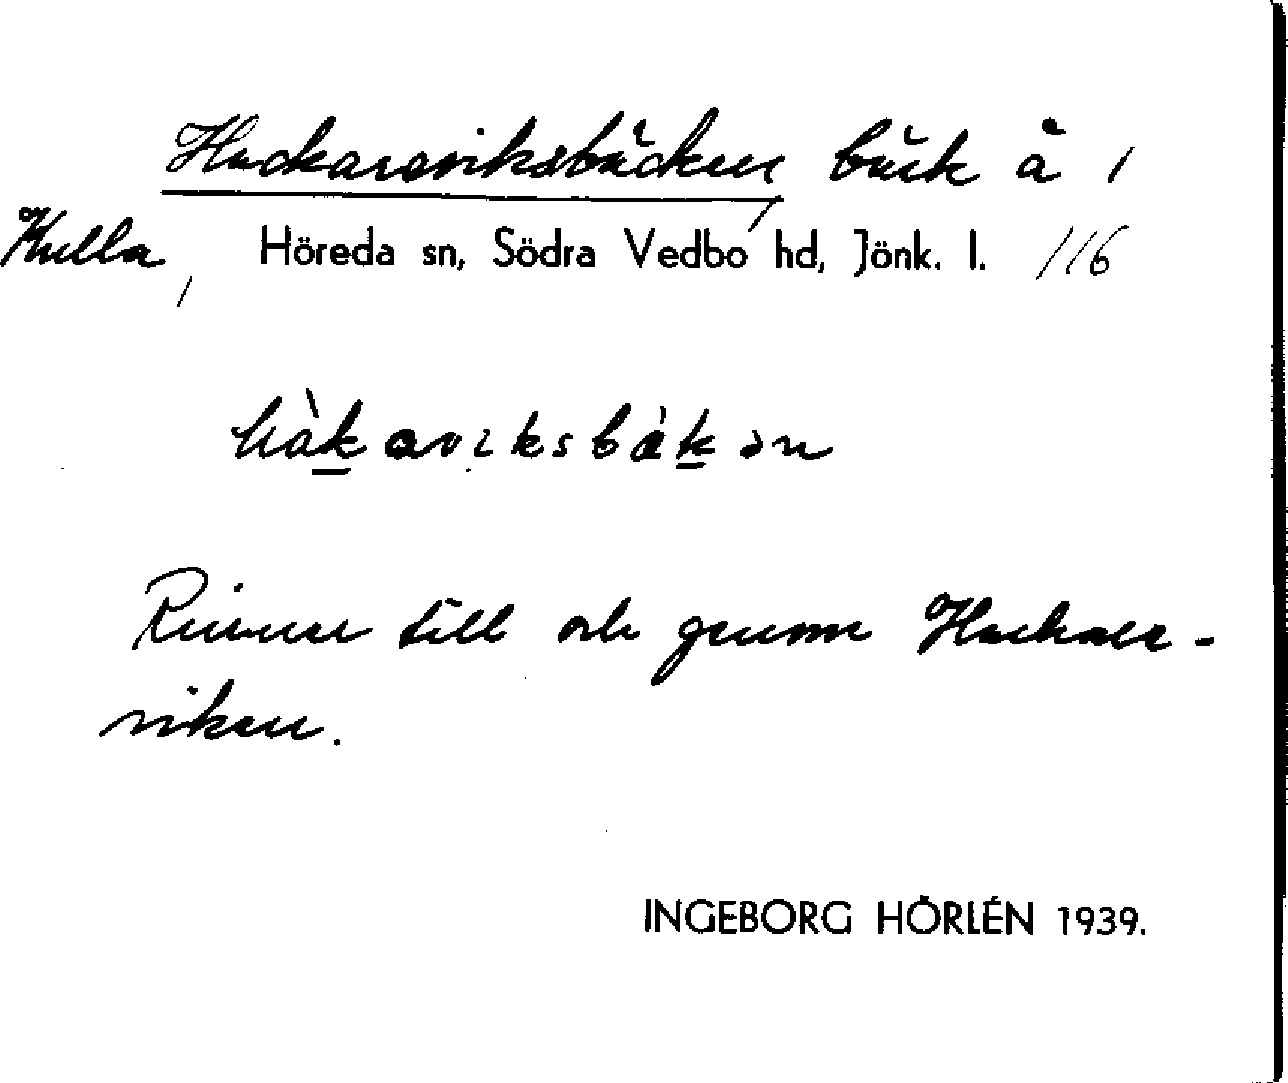 Hackaraviksbäcken, bäck å
Kulla, Höreda sn, Södra Vedbo hd, Jönk. l. 1/16
hàkaviksbäkən
Rinner till och genom Hackara-
viken.
INGEBORG HÖRLÉN 1939.